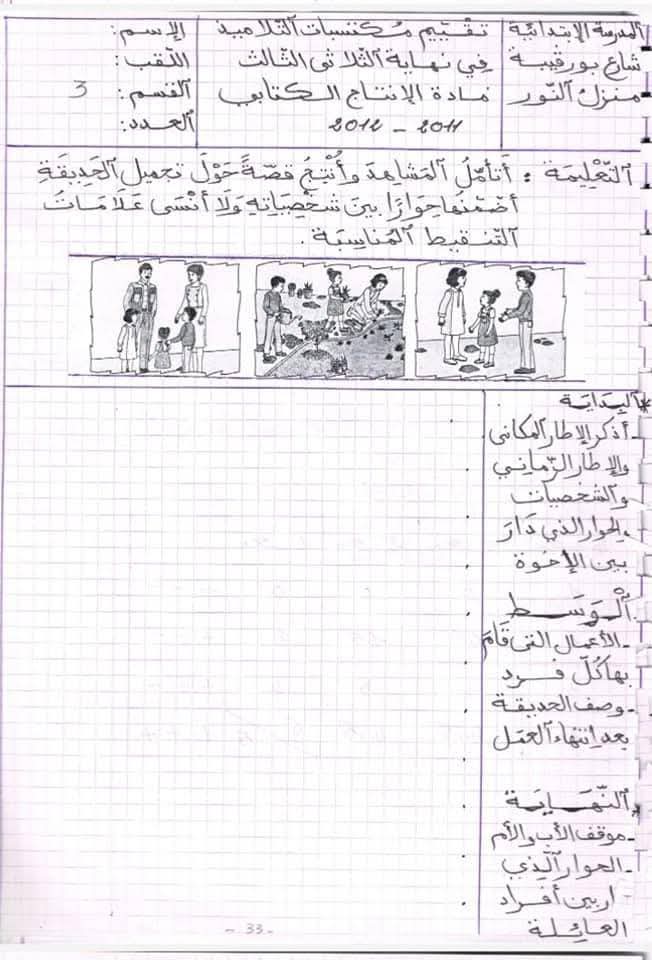 المدرسة الإبتدائية
شارع بورقيبة
منزل النّور
تقييم مكتسبات التّلاميذ
في نهاية الثّلاثي الثّالث
مادة الإنتاج الكتابي
2011 - 2012
الإسم:
اللّقب:
القسم: 3
العدد:
التّعْلِيمَة : أَتأمّلُ المَشاهِدَ وأُنْتِجُ قصّةً حَوْلَ تجميل الحَدِيقَةِ
أضمّنها حِوَارًا بينَ شخْصِيَاتِهِ وَلَا أَنْسَى عَلَامَاتُ
التّنقيط المُناسِبَة .
* البداية
- أذكر الإطار المكاني
والإطار الزّماني
والشخصيات
- الحوار الذي دَارَ
بين الإخوة
الْوَسَط
- الأعمال التي قَامَ
بها كُلّ فرد
- وصف الحديقة
بعد انتهاء العمَل
* النّهَايَة
- موقف الأب والأم
- الحوار الّذي
ار بين أفراد
العائِلة
- 33 -